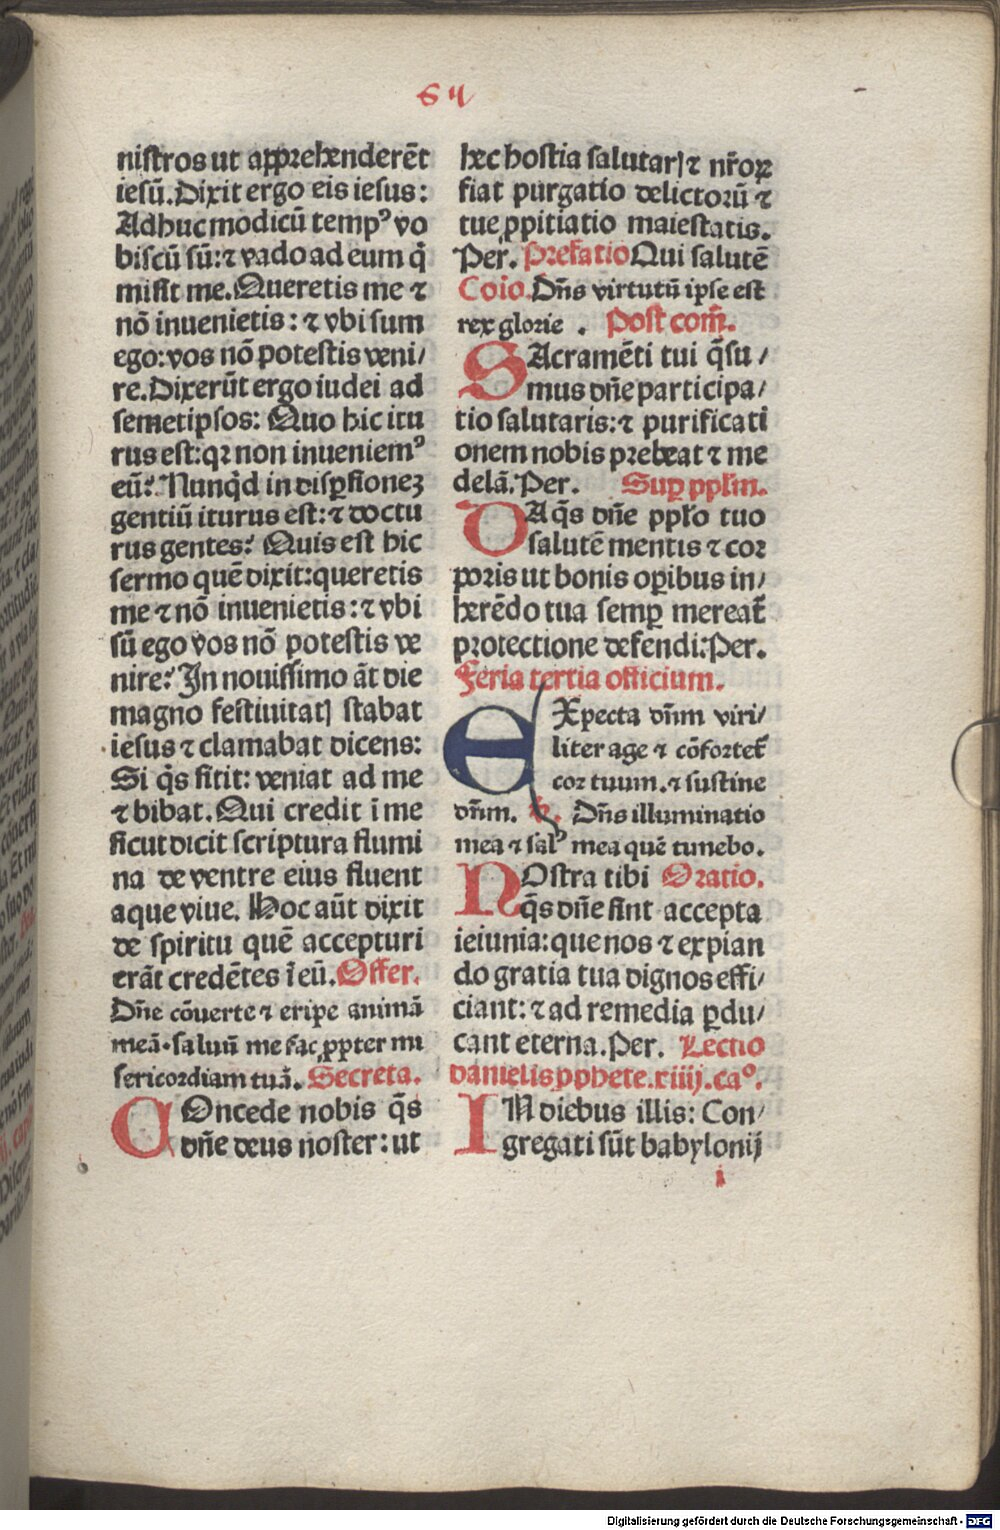 64
nistros ut apprehenderēt
iesū. Dixit ergo eis iesus:
Adhuc modicū tempꝰ vo
biscū sū: ⁊ vado ad eum q̇
misit me. Queretis me ⁊
nō inuenietis: ⁊ vbi sum
ego: vos nō potestis veni/
re. Dixerūt ergo iudei ad
semetipsos: Quo hic itu
rus est: qꝛ non inueniemꝰ
eū? Nunq̇d in disꝑsionez
gentiū iturus est: ⁊ doctu
rus gentes? Quis est hic
sermo quē dixit: queretis
me ⁊ nō inuenietis: ⁊ vbi
sū ego vos nō potestis ve
nire? In nouissimo āt die
magno festiuitatꝭ stabat
iesus ⁊ clamabat dicens:
Si q̇s sitit: veniat ad me
⁊ bibat. Qui credit ī me
sicut dicit scriptura flumi
na de ventre eius fluent
aque viue. Hoc aūt dixit
de spiritu quē accepturi
erāt credētes ī eū. Offer.
Dn̄e cōuerte ⁊ eripe animā
meā. saluū me fac ꝓpter mi
sericordiam tuā. Secreta.
COncede nobis q̄s
dn̄e deus noster: ut
hec hostia salutarꝭ ⁊ nr̄oꝝ
fiat purgatio delictorū ⁊
tue ꝓpitiatio maiestatis.
Per. Prefatio Qui salutē
Coīo. Dn̄s virtutū ipse est
rex glorie. Post com̄.
SAcramēti tui q̄su/
mus dn̄e participa/
tio salutaris: ⁊ purificati
onem nobis prebeat ⁊ me
delā. Per. Suꝑ ppl̄m.
DA q̄s dn̄e pplo tuo
salutē mentis ⁊ cor
poris ut bonis oꝑibus in/
herēdo tua semꝑ mereat̄
protectione defendi: Per.
Feria tertia officium.
EXpecta dn̄m viri/
liter age ⁊ cōfortet̄
cor tuum. ⁊ sustine
dn̄m. ꝟ. Dn̄s illuminatio
mea ⁊ salꝰ mea quē timebo.
NOstra tibi Oratio.
q̄s dn̄e sint accepta
ieiunia: que nos ⁊ expian
do gratia tua dignos effi/
ciant: ⁊ ad remedia ꝑdu/
cant eterna. Per. Lectio
danielis ꝓphete. xiiij. caº.
IN diebus illis: Con/
gregati sūt babylonij
i
Digitalisierung gefördert durch die Deutsche Forschungsgemeinschaft - DFG